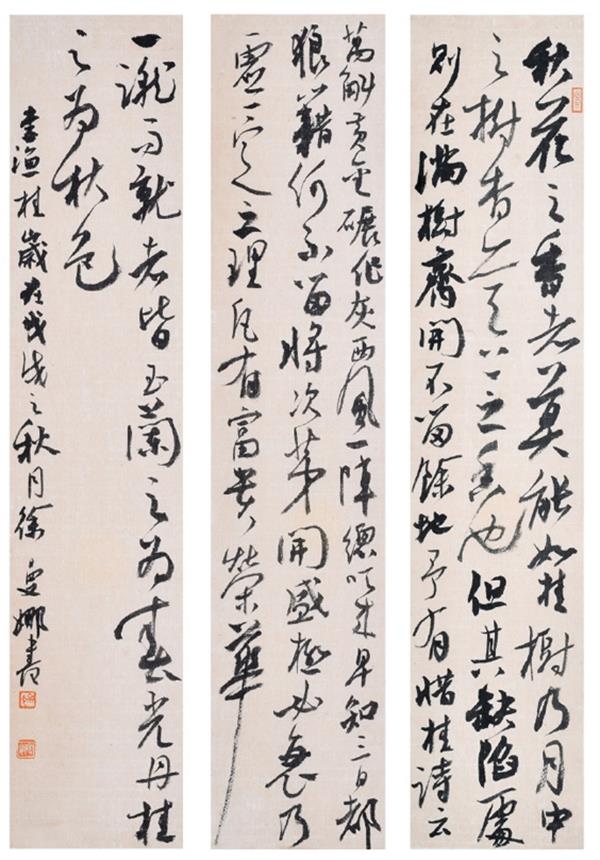 秋花之香者莫能如桂樹乃月中
之樹香亦天上之香也但其缺陷處
則在滿樹齊開不留餘地予有惜桂詩云
萬斛黃金碾作灰西風一陣總吹來早知三日都
狼藉何不留將次第開盛極必衰乃
虛一定之理凡有富貴榮華
一蹴而就者皆玉蘭之為春光丹桂
之為秋色
李漁桂歲在戊戌之秋月徐曼娜書